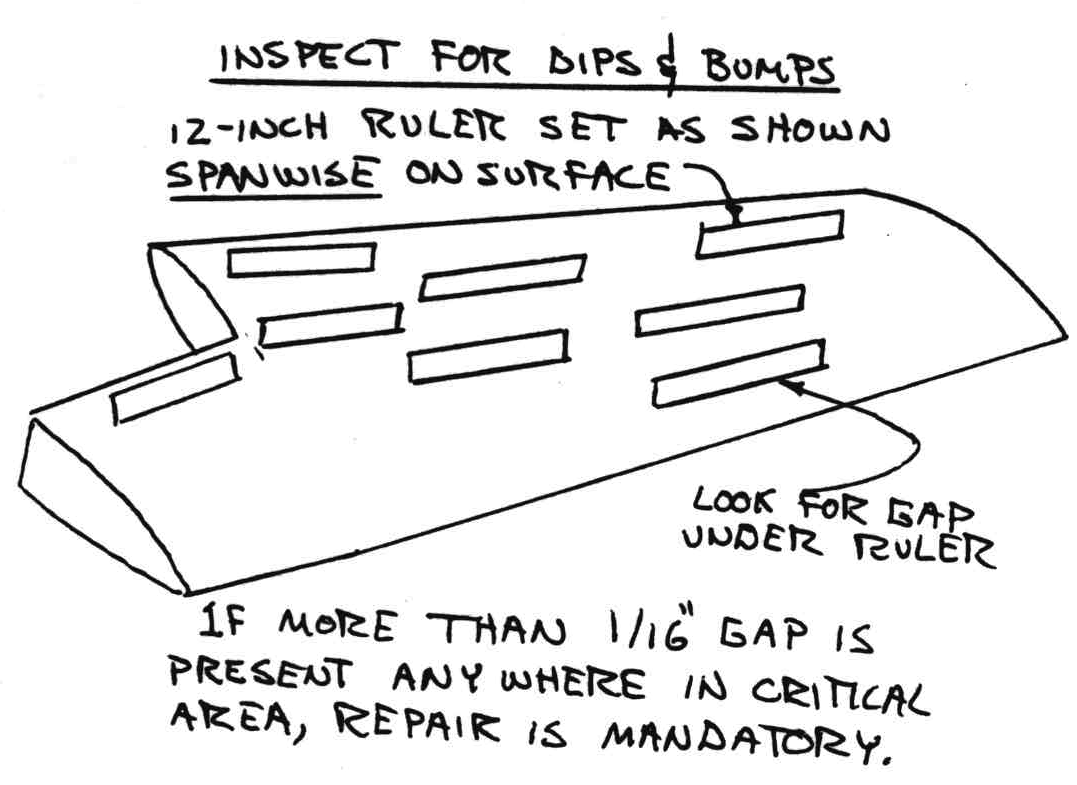 INSPECT FOR DIPS & BUMPS
12-INCH RULER SET AS SHOWN
SPANWISE ON SURFACE
LOOK FOR GAP
UNDER RULER
IF MORE THAN 1/16" GAP IS
PRESENT ANYWHERE IN CRITICAL
AREA, REPAIR IS MANDATORY.